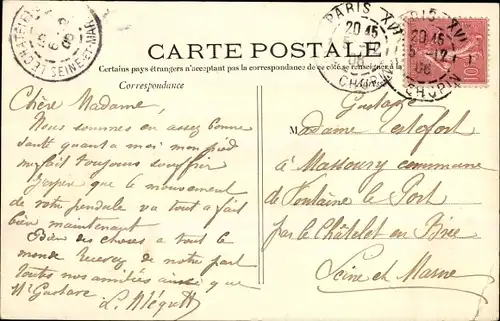 LE CHATELET
SEINE-ET-MAR
6 -12
06
PARIS XVI
20 45
5 -12
06
CHOPIN
PARIS-XVI
20 45
5 -12
06
CHOPIN
10
CARTE POSTALE
Certains pays étrangers n'acceptant pas la correspondance de ce côté se renseigner à la
Correspondance
Chère Madame,
Nous sommes en assez bonne
santé quant a moi mon pied
me fait toujours souffrir
J'espère que le mouvement
de votre pendule va tout a fait
bien maintenant
Bien des choses a tout le
monde recevez de notre part
toutes nos amitiés ainsi que
Mr Gustave
Gustave
M adame
à Massoury commune
de Fontaine le Port
par le Châtelet en Brie
Seine et Marne